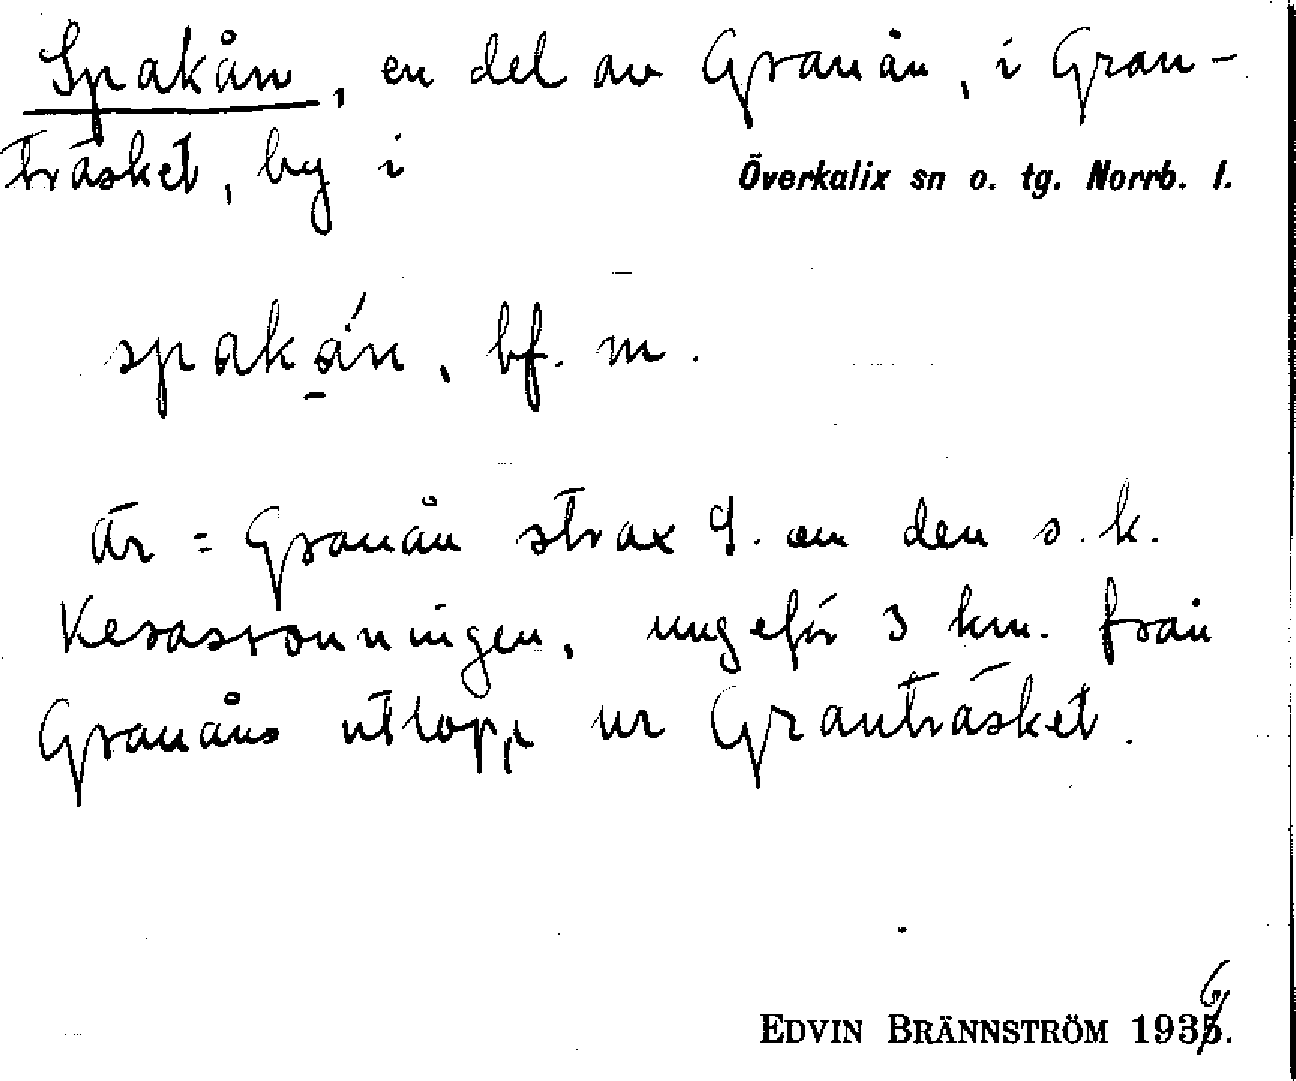 Spakån, en del av Granån, i Gran-
träsket, by i Överkalix sn o. tg. Norrb. l.
spakån, bf. m.
är = Granån strax om den s. k.
ungefär 3 km. från
Granåns utlopp ur Granträsket.
EDVIN BRÄNNSTRÖM 1936.